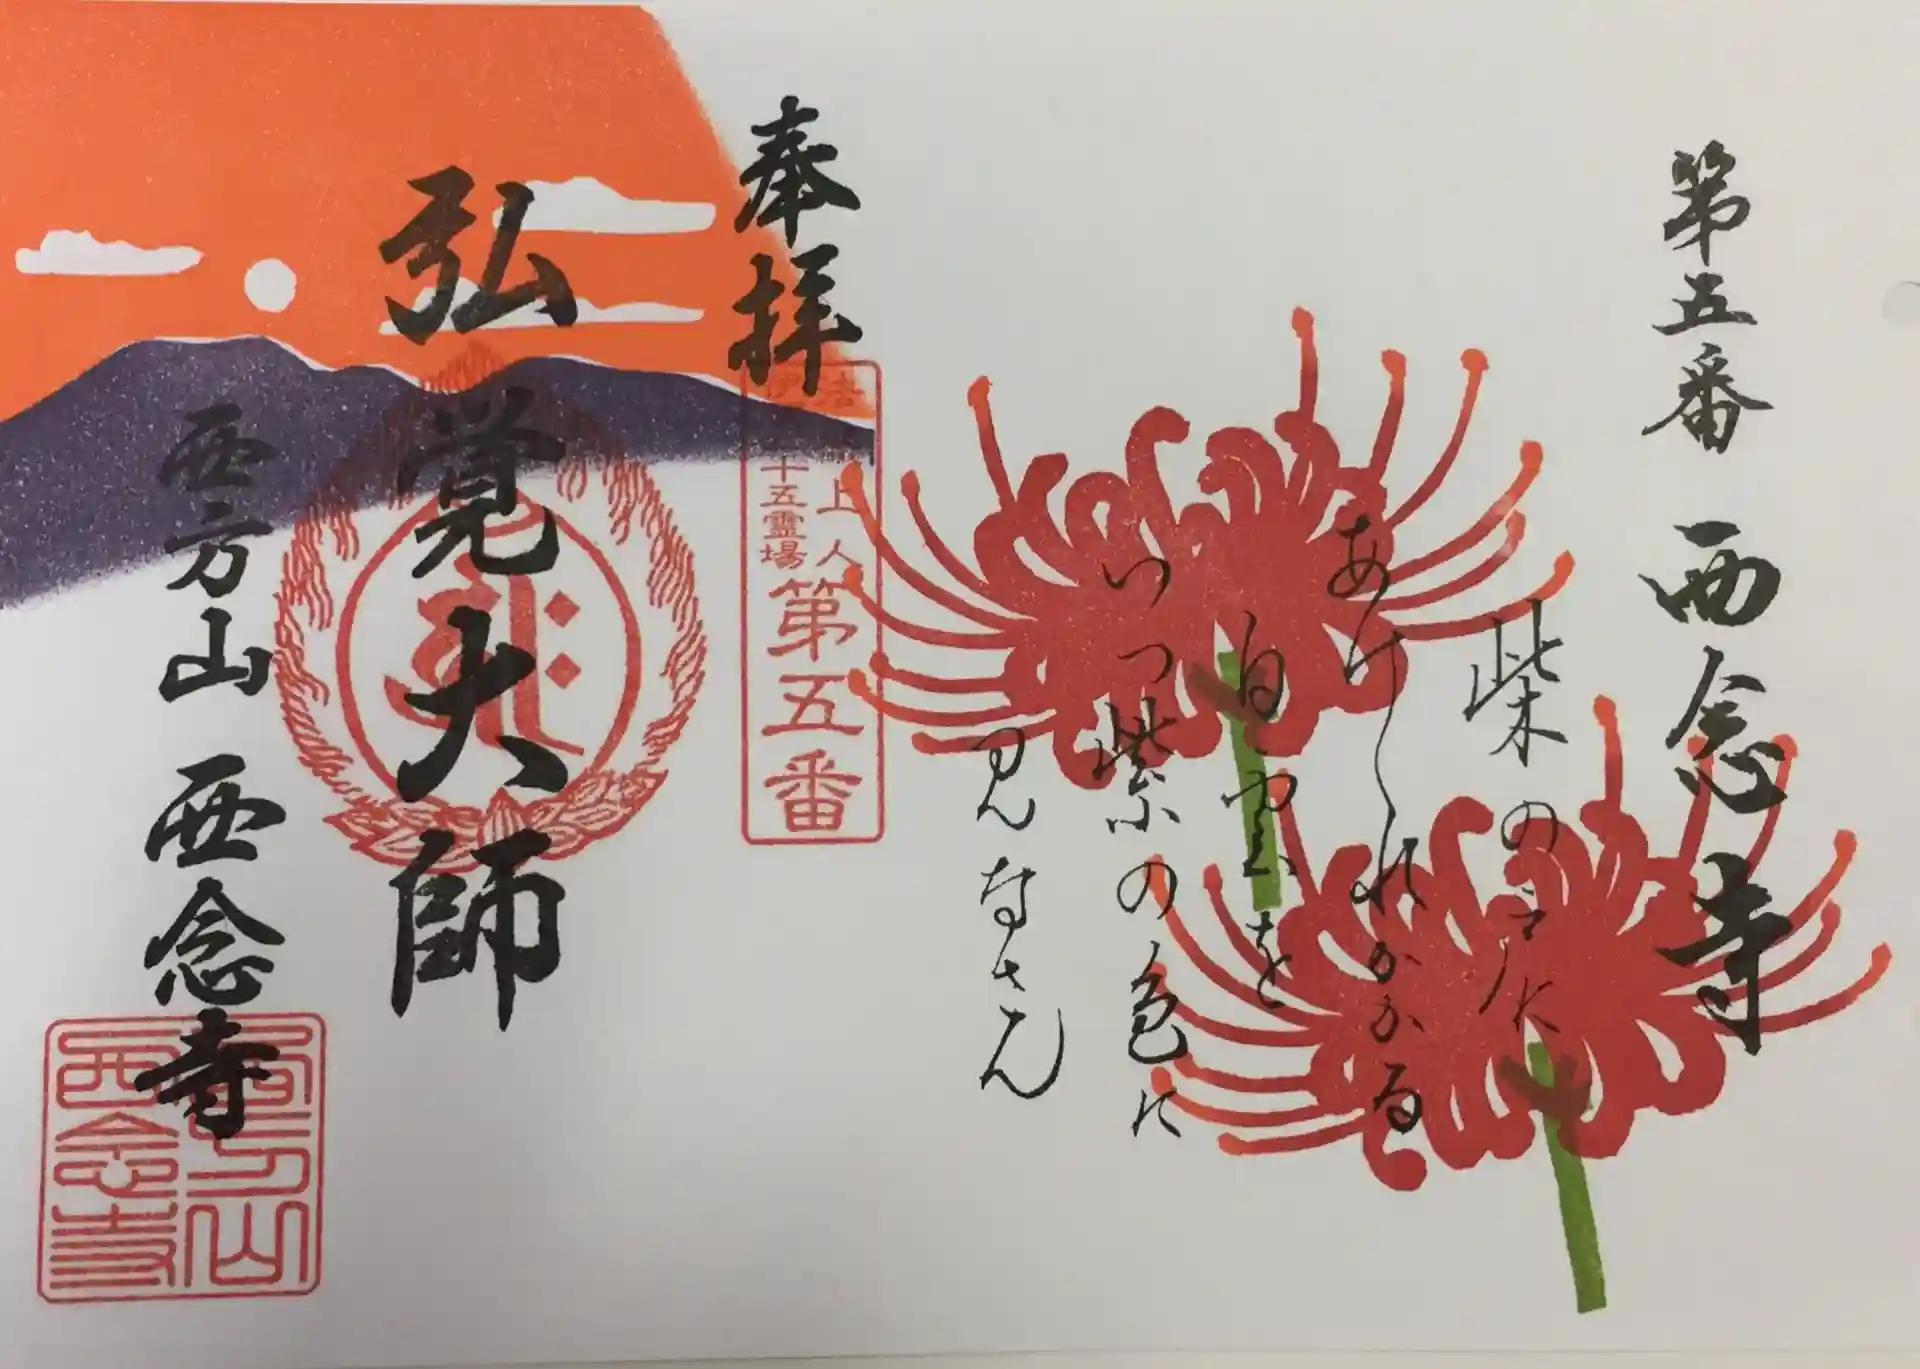 第五番 西念寺
柴の戸に
あけくれかかる
白雲を
いつ紫の色に
見なさん
奉拝
上人
十五霊場
第五番
弘覚大師
西方山 西念寺
西方山
西念寺